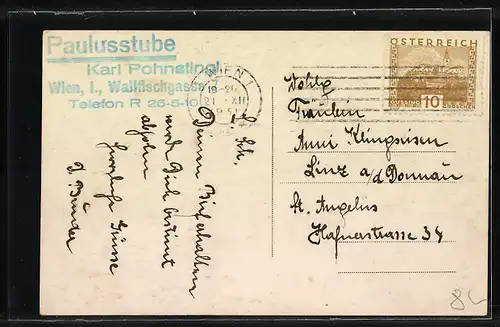 Paulusstube
Karl Pohnstingl
Wien, I., Wallfischgasse
Telefon R 26-5-10
WIEN 1
21. XII
ÖSTERREICH
10
Wohlg.
Fräulein
Anni Klingseisen
Linz a/d Donnau
St. Angelus
Hafnerstrasse 34
L. Sch.
Deinen Brief erhalten
werde Dich bestimmt
abholen
Herzliche Grüsse
D. Bruder